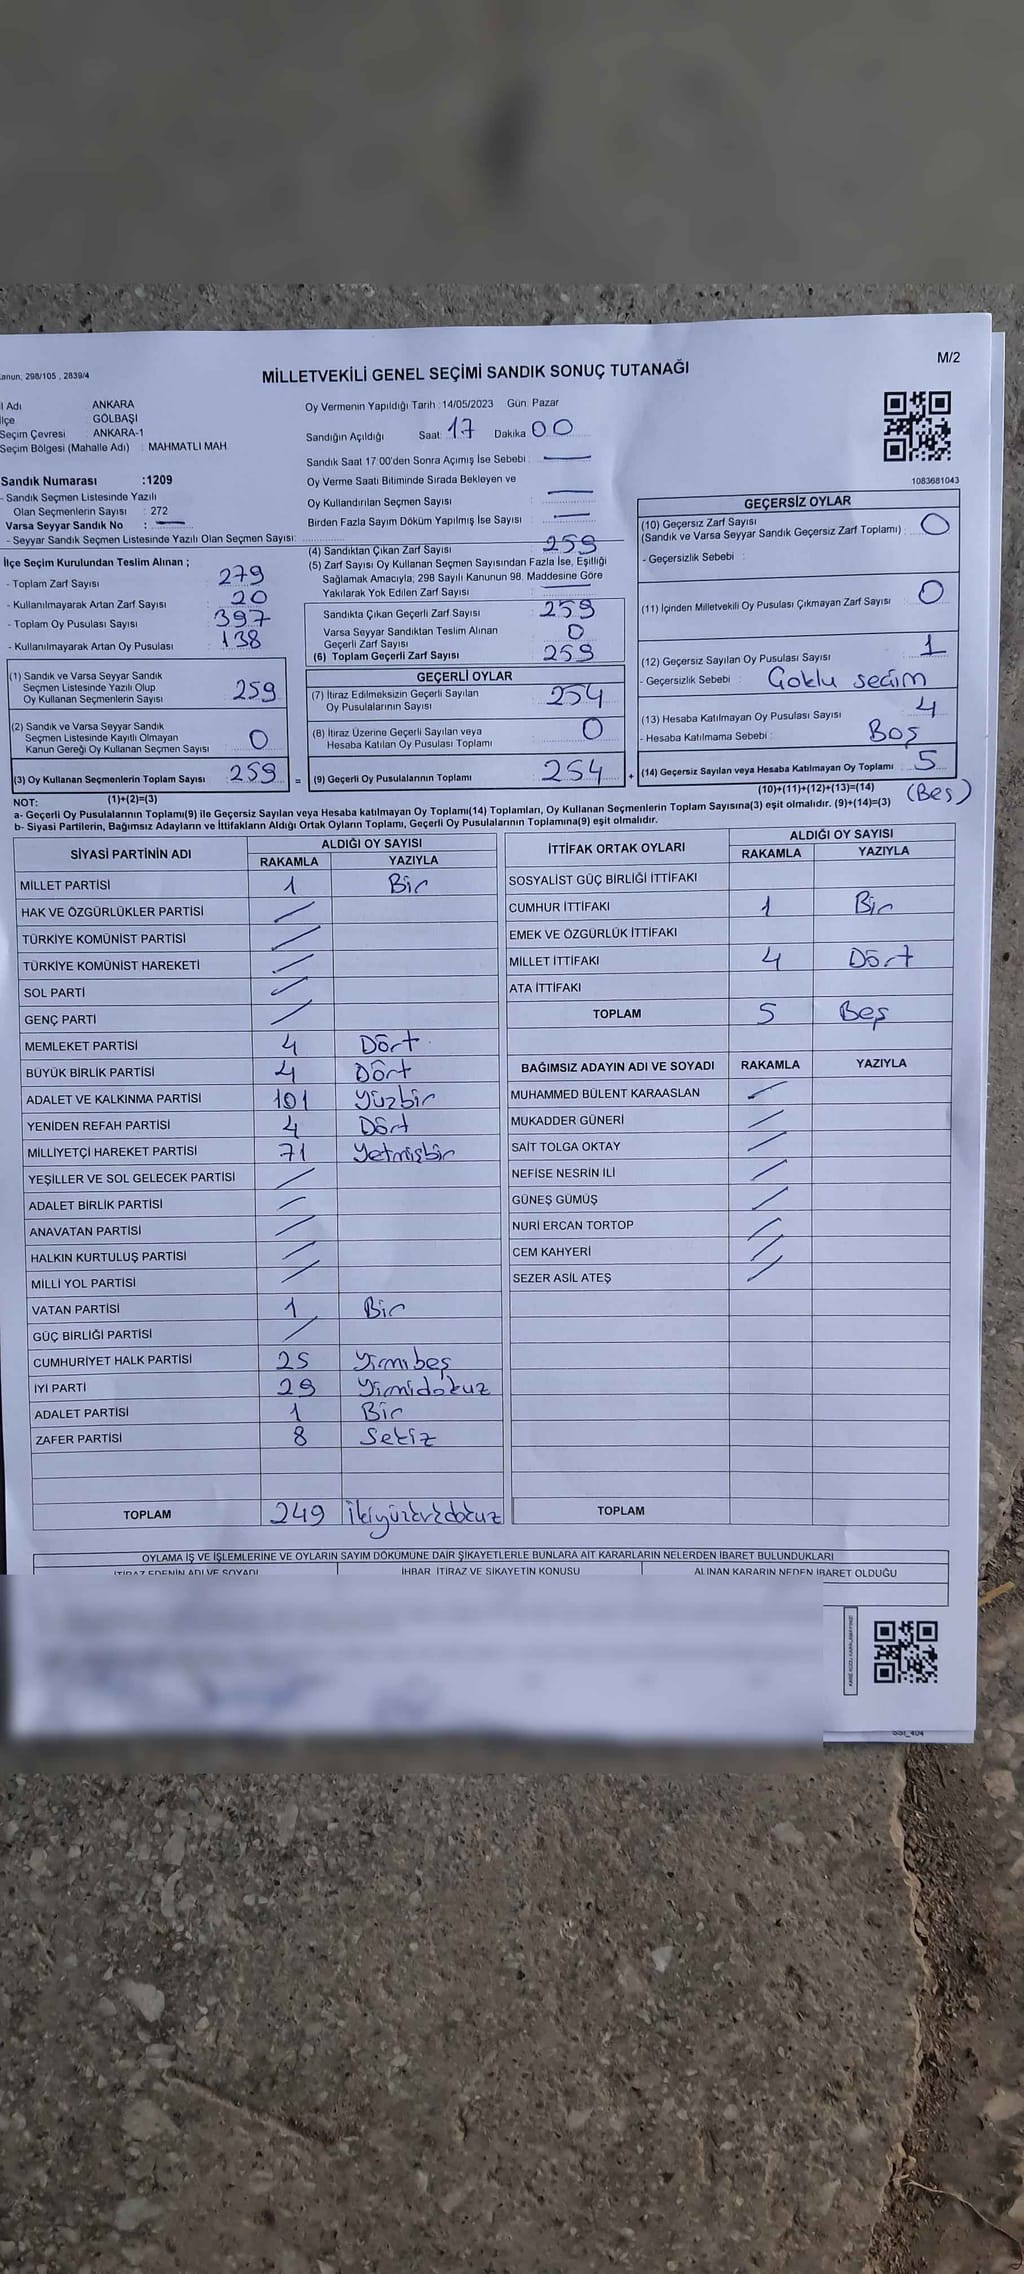 M/2
anun, 298/105 , 2839/4
MİLLETVEKİLİ GENEL SEÇİMİ SANDIK SONUÇ TUTANAĞI
l Adı ANKARA
lçe GÖLBAŞI
Seçim Çevresi ANKARA-1
Seçim Bölgesi (Mahalle Adı) : MAHMATLI MAH.
Sandık Numarası :1209
- Sandık Seçmen Listesinde Yazılı
Olan Seçmenlerin Sayısı : 272
Varsa Seyyar Sandık No : —
- Seyyar Sandık Seçmen Listesinde Yazılı Olan Seçmen Sayısı:
Oy Vermenin Yapıldığı Tarih :14/05/2023 Gün: Pazar
Sandığın Açıldığı Saat: 17 Dakika 00
Sandık Saat 17:00'den Sonra Açımış İse Sebebi : —
Oy Verme Saati Bitiminde Sırada Bekleyen ve
Oy Kullandırılan Seçmen Sayısı —
Birden Fazla Sayım Döküm Yapılmış İse Sayısı : —
1083681043
İlçe Seçim Kurulundan Teslim Alınan ;
- Toplam Zarf Sayısı : 279
- Kullanılmayarak Artan Zarf Sayısı : 20
- Toplam Oy Pusulası Sayısı : 397
- Kullanılmayarak Artan Oy Pusulası : 138
(1) Sandık ve Varsa Seyyar Sandık
Seçmen Listesinde Yazılı Olup
Oy Kullanan Seçmenlerin Sayısı 259
(2) Sandık ve Varsa Seyyar Sandık
Seçmen Listesinde Kayıtlı Olmayan
Kanun Gereği Oy Kullanan Seçmen Sayısı 0
(3) Oy Kullanan Seçmenlerin Toplam Sayısı 259 =
(1)+(2)=(3)
(4) Sandıktan Çıkan Zarf Sayısı 259
(5) Zarf Sayısı Oy Kullanan Seçmen Sayısından Fazla İse, Eşitliği
Sağlamak Amacıyla; 298 Sayılı Kanunun 98. Maddesine Göre
Yakılarak Yok Edilen Zarf Sayısı : —
Sandıkta Çıkan Geçerli Zarf Sayısı 259
Varsa Seyyar Sandıktan Teslim Alınan
Geçerli Zarf Sayısı 0
(6) Toplam Geçerli Zarf Sayısı 259
GEÇERLİ OYLAR
(7) İtiraz Edilmeksizin Geçerli Sayılan
Oy Pusulalarının Sayısı 254
(8) İtiraz Üzerine Geçerli Sayılan veya
Hesaba Katılan Oy Pusulası Toplamı 0
(9) Geçerli Oy Pusulalarının Toplamı 254 +
GEÇERSİZ OYLAR
(10) Geçersiz Zarf Sayısı
(Sandık ve Varsa Seyyar Sandık Geçersiz Zarf Toplamı) : 0
- Geçersizlik Sebebi :
(11) İçinden Milletvekili Oy Pusulası Çıkmayan Zarf Sayısı 0
(12) Geçersiz Sayılan Oy Pusulası Sayısı 1
- Geçersizlik Sebebi : Çoklu seçim
(13) Hesaba Katılmayan Oy Pusulası Sayısı 4
- Hesaba Katılmama Sebebi : Boş
(14) Geçersiz Sayılan veya Hesaba Katılmayan Oy Toplamı 5
(10)+(11)+(12)+(13)=(14) (Beş)
NOT:
a- Geçerli Oy Pusulalarının Toplamı(9) ile Geçersiz Sayılan veya Hesaba katılmayan Oy Toplamı(14) Toplamları, Oy Kullanan Seçmenlerin Toplam Sayısına(3) eşit olmalıdır. (9)+(14)=(3)
b- Siyasi Partilerin, Bağımsız Adayların ve İttifakların Aldığı Ortak Oyların Toplamı, Geçerli Oy Pusulalarının Toplamına(9) eşit olmalıdır.
SİYASİ PARTİNİN ADI ALDIĞI OY SAYISI
RAKAMLA YAZIYLA
MİLLET PARTİSİ 1 Bir
HAK VE ÖZGÜRLÜKLER PARTİSİ /
TÜRKİYE KOMÜNİST PARTİSİ /
TÜRKİYE KOMÜNİST HAREKETİ /
SOL PARTİ /
GENÇ PARTİ /
MEMLEKET PARTİSİ 4 Dört
BÜYÜK BİRLİK PARTİSİ 4 Dört
ADALET VE KALKINMA PARTİSİ 101 Yüzbir
YENİDEN REFAH PARTİSİ 4 Dört
MİLLİYETÇİ HAREKET PARTİSİ 71 Yetmişbir
YEŞİLLER VE SOL GELECEK PARTİSİ /
ADALET BİRLİK PARTİSİ /
ANAVATAN PARTİSİ /
HALKIN KURTULUŞ PARTİSİ /
MİLLİ YOL PARTİSİ /
VATAN PARTİSİ 1 Bir
GÜÇ BİRLİĞİ PARTİSİ /
CUMHURİYET HALK PARTİSİ 25 Yirmibeş
İYİ PARTİ 29 Yirmidokuz
ADALET PARTİSİ 1 Bir
ZAFER PARTİSİ 8 Sekiz
TOPLAM 249
İTTİFAK ORTAK OYLARI ALDIĞI OY SAYISI
RAKAMLA YAZIYLA
SOSYALİST GÜÇ BİRLİĞİ İTTİFAKI
CUMHUR İTTİFAKI 1 Bir
EMEK VE ÖZGÜRLÜK İTTİFAKI
MİLLET İTTİFAKI 4 Dört
ATA İTTİFAKI
TOPLAM 5 Beş
BAĞIMSIZ ADAYIN ADI VE SOYADI RAKAMLA YAZIYLA
MUHAMMED BÜLENT KARAASLAN /
MUKADDER GÜNERİ /
SAİT TOLGA OKTAY /
NEFİSE NESRİN İLİ /
GÜNEŞ GÜMÜŞ /
NURİ ERCAN TORTOP /
CEM KAHYERİ /
SEZER ASIL ATEŞ /
TOPLAM
OYLAMA İŞ VE İŞLEMLERİNE VE OYLARIN SAYIM DÖKÜMÜNE DAİR ŞİKAYETLERLE BUNLARA AİT KARARLARIN NELERDEN İBARET BULUNDUKLARI
İTİRAZ EDENİN ADI VE SOYADI İHBAR, İTİRAZ VE ŞİKAYETİN KONUSU ALINAN KARARIN NEDEN İBARET OLDUĞU